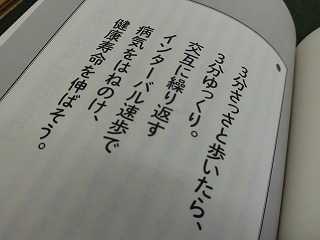 ３分さっさと歩いたら、
３分ゆっくり。
交互に繰り返す
インターバル速歩で
病気をはねのけ、
健康寿命を伸ばそう。